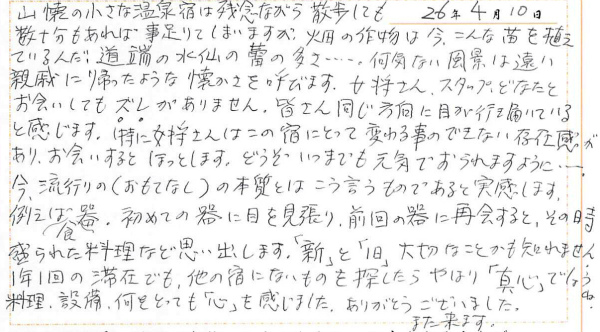 山懐の小さな温泉宿は残念ながら散歩しても 26年4月10日
数十分もあれば事足りてしまいますが、畑の作物は今、こんな苗を植え
ているんだ、道端の水仙の蕾の多さ……、何気ない風景は遠い
親戚に帰ったような懐かさを呼びます。女将さん、スタッフ、どなたと
お会いしてもズレがありません。皆さん同じ方向に目が行き届いている
と感じます。(特に女将さんはこの宿にとって変わる事のできない存在感が
あり、お会いするとほっとします。どうぞいつまでも元気でおられますように……。
今、流行りの(おもてなし)の本質とはこう言うものであると実感します。
例えば食器。初めての器に目を見張り、前回の器に再会すると、その時
盛られた料理など思い出します。「新」と「旧」大切なことかも知れません。
1年1回の滞在でも、他の宿にないものを探したらやはり「真心」でしょうね。
料理、設備、何をとっても「心」を感じました。ありがとうございました。
また来ます。